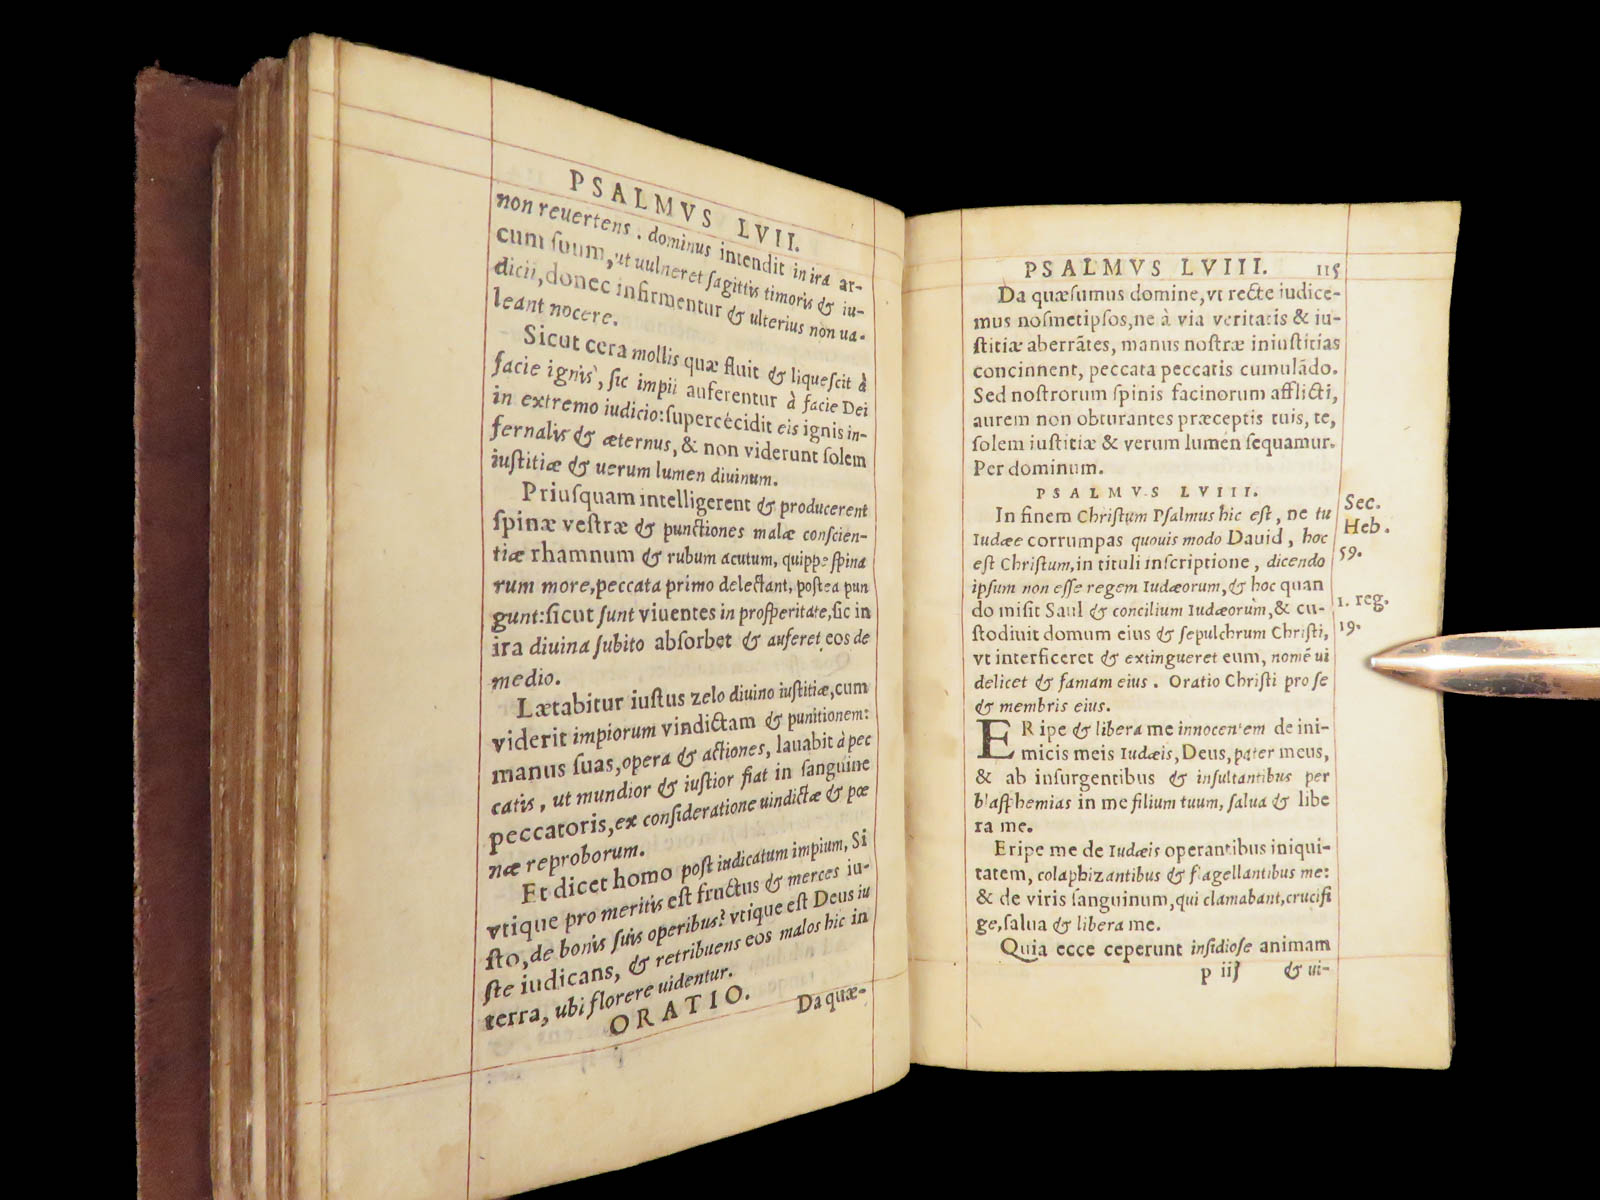 PSALMVS LVII.
non reuertens. dominus intendit in ira ar-
cum ſuum, ut uulneret ſagittis timoris & iu-
dicii, donec infirmentur & ulterius non ua-
leant nocere.
Sicut cera mollis quæ fluit & liqueſcit à
facie ignis, ſic impii auferentur à facie Dei
in extremo iudicio: ſupercécidit eis ignis in-
fernalis & æternus, & non viderunt ſolem
iuſtitiæ & uerum lumen diuinum.
Priuſquam intelligerent & producerent
ſpinæ veſtræ & punctiones malæ conſcien-
tiæ rhamnum & rubum acutum, quippe ſpina
rum more, peccata primo delectant, poſtea pun
gunt: ſicut ſunt viuentes in proſperitate, ſic in
ira diuina ſubito abſorbet & auferet eos de
medio.
Lætabitur iuſtus zelo diuino iuſtitiæ, cum
viderit impiorum vindictam & punitionem:
manus ſuas, opera & actiones, lauabit à pec
catis, ut mundior & iuſtior fiat in ſanguine
peccatoris, ex conſideratione uindictæ & pœ
næ reproborum.
Et dicet homo poſt iudicatum impium, Si
vtique pro meritis eſt fructus & merces iu-
ſto, de bonis ſuis operibus? vtique eſt Deus iu
ſte iudicans, & retribuens eos malos hic in
terra, ubi florere uidentur.
ORATIO.
Da quæ-
PSALMVS LVIII. 115
Da quæſumus domine, vt recte iudice-
mus noſmetipſos, ne à via veritatis & iu-
ſtitiæ aberrãtes, manus noſtræ iniuſtitias
concinnent, peccata peccatis cumulãdo.
Sed noſtrorum ſpinis facinorum afflicti,
aurem non obturantes præceptis tuis, te,
ſolem iuſtitiæ & verum lumen ſequamur.
Per dominum.
PSALMVS LVIII.
In finem Chriſtum Pſalmus hic eſt, ne tu
Iudæe corrumpas quouis modo Dauid, hoc
eſt Chriſtum, in tituli inſcriptione, dicendo
ipſum non eſſe regem Iudæorum, & hoc quan
do miſit Saul & concilium Iudæorum, & cu-
ſtodiuit domum eius & ſepulchrum Chriſti,
vt interficeret & extingueret eum, nomẽ ui
delicet & famam eius. Oratio Chriſti pro ſe
& membris eius.
Sec.
Heb.
59.
1. reg.
19.
ERipe & libera me innocentem de ini-
micis meis Iudæis, Deus, pater meus,
& ab inſurgentibus & inſultantibus per
blaſphemias in me filium tuum, ſalua & libe
ra me.
Eripe me de Iudæis operantibus iniqui-
tatem, colaphizantibus & flagellantibus me:
& de viris ſanguinum, qui clamabant, crucifi
ge, ſalua & libera me.
Quia ecce ceperunt inſidioſe animam
p iij & ui-